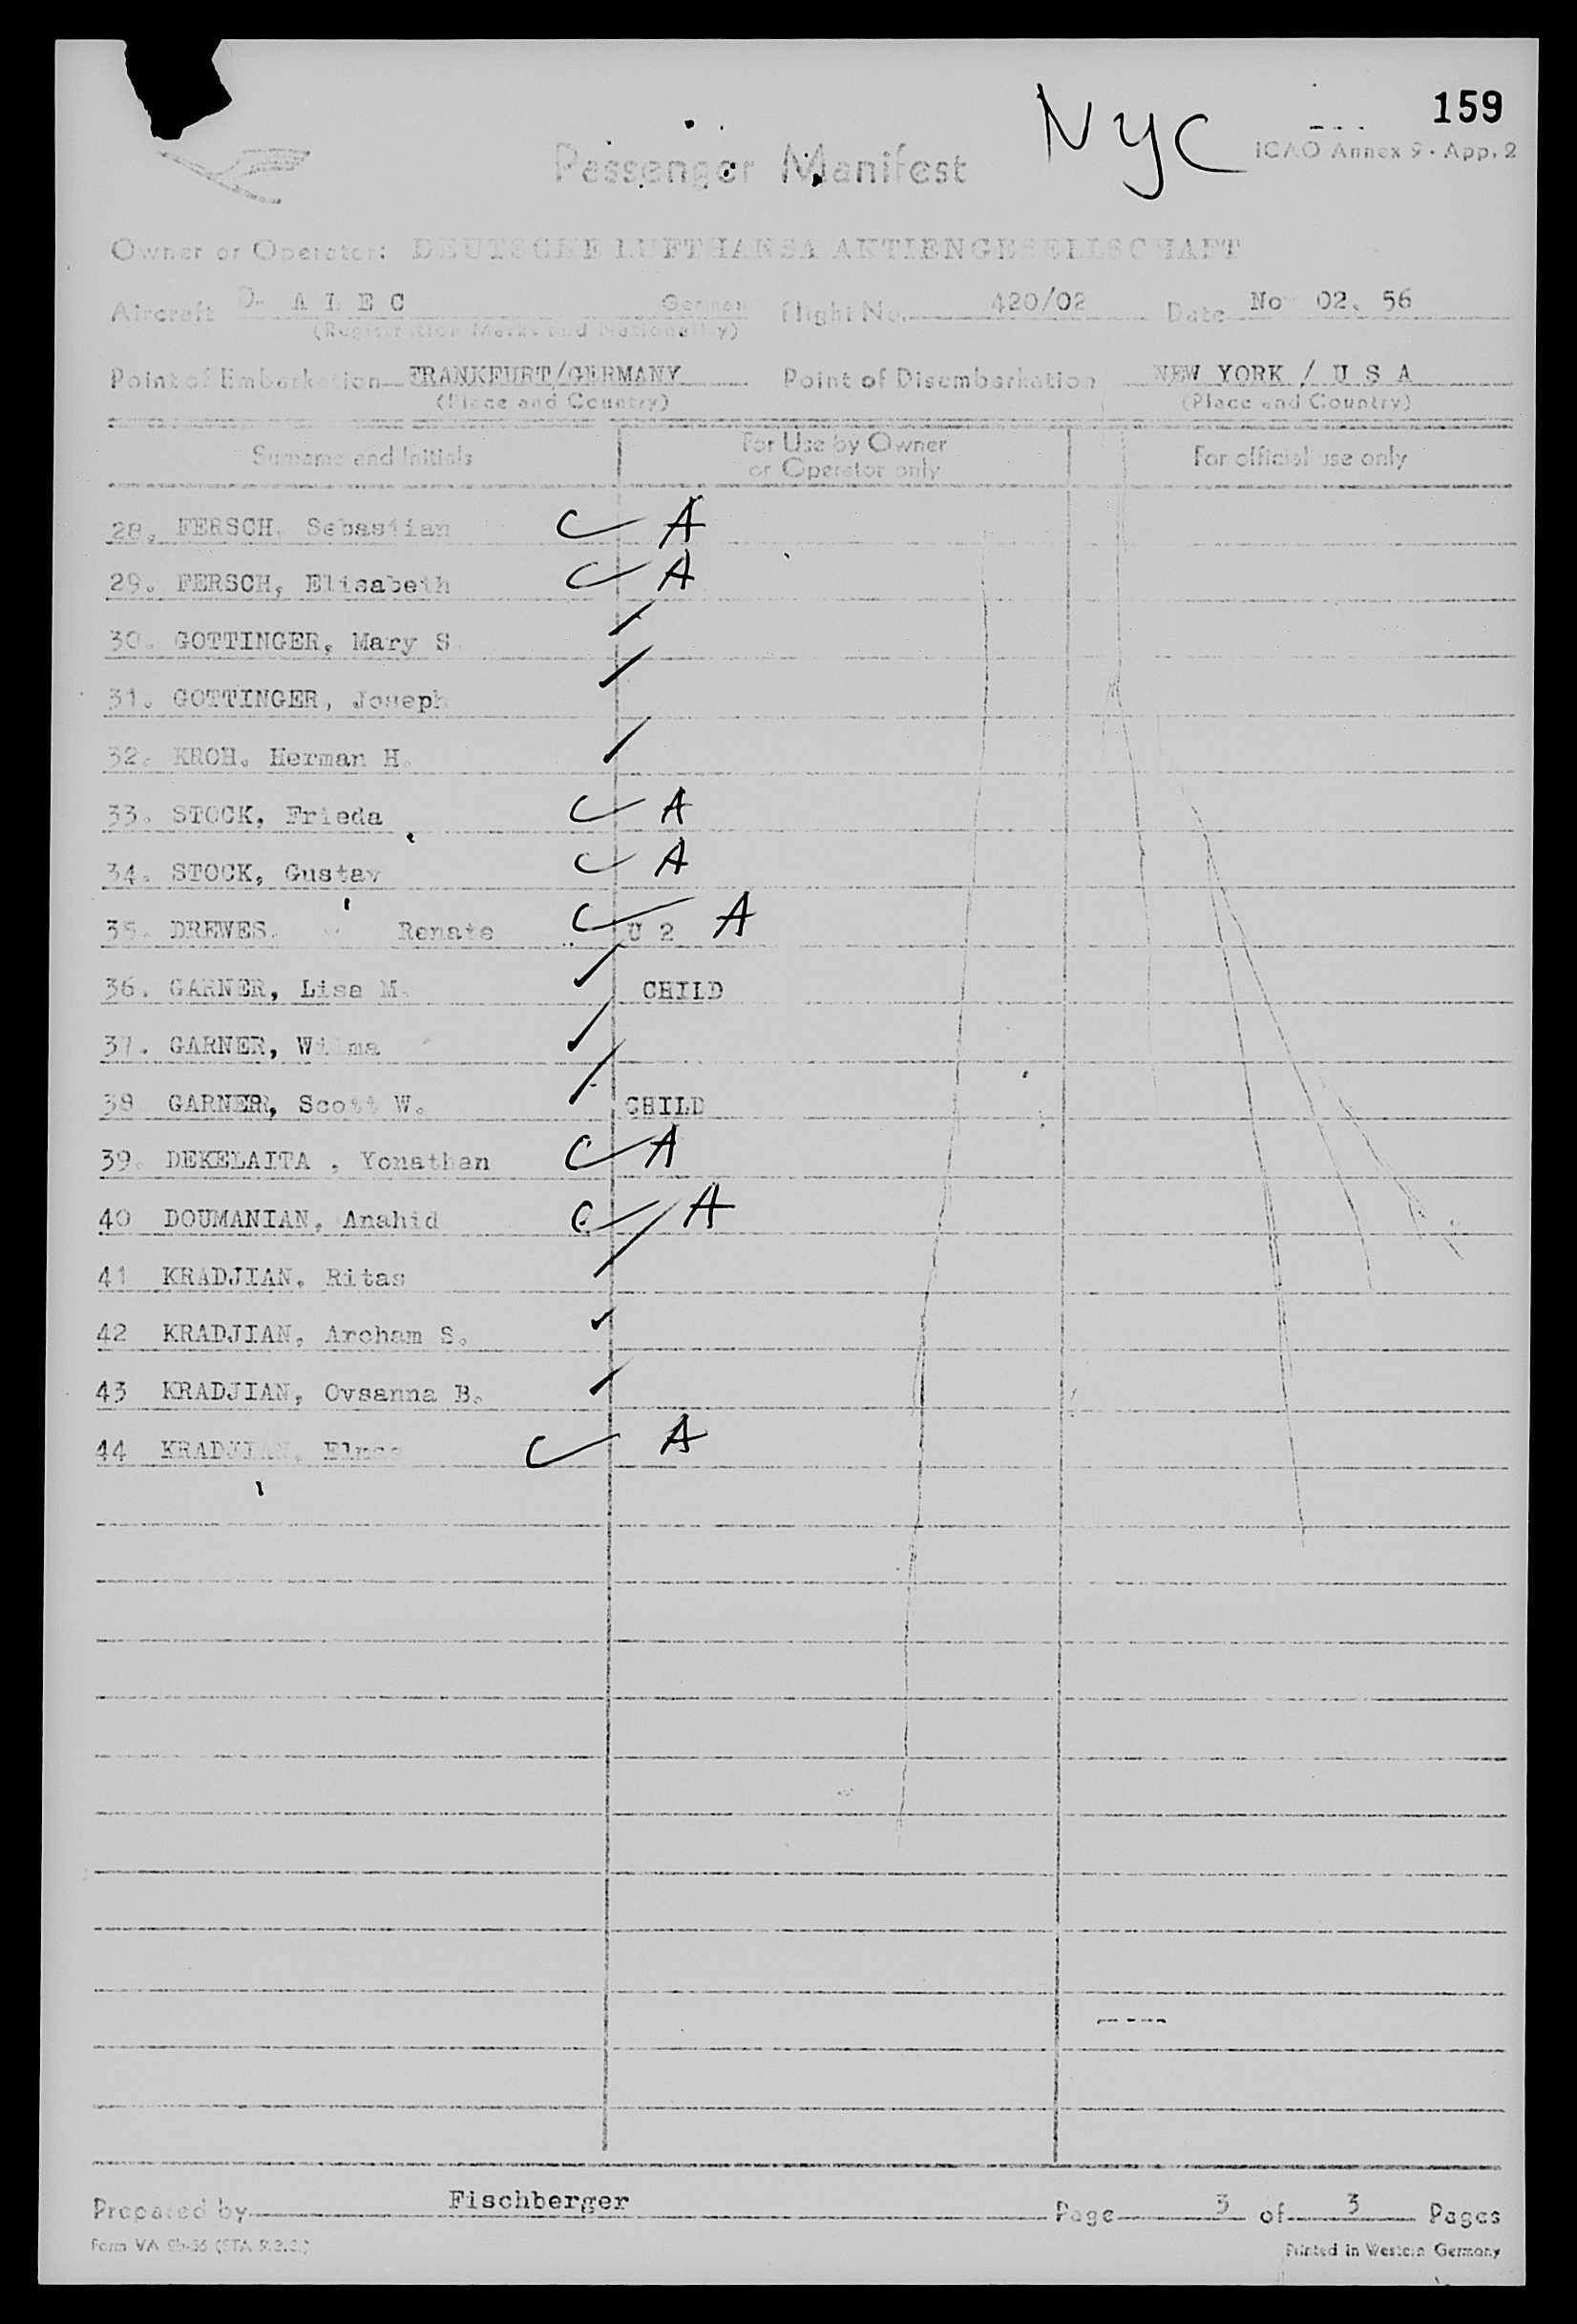 NYC
159
ICAO Annex 9 - App. 2
Passenger Manifest
Owner or Operator: DEUTSCHE LUFTHANSA AKTIENGESELLSCHAFT
Aircraft D- A L E C German Flight No. 420/02 Date No 02. 56
(Registration Marks and Nationality)
Point of Embarkation FRANKFURT/GERMANY Point of Disembarkation NEW YORK / U S A
(Place and Country) (Place and Country)
Surname and Initials For Use by Owner or Operator only For official use only
28. FERSCH, Sebastian C A
29. FERSCH, Elisabeth C A
30. GOTTINGER, Mary S
31. GOTTINGER, Joseph
32. KROH. Herman H.
33. STOCK, Frieda C A
34. STOCK, Gustav C A
35. DREWES. Renate C U 2 A
36. GARNER, Lisa M. CHILD
37. GARNER, Wilma
38 GARNER, Scott W. CHILD
39. DEKELAITA , Yonathan C A
40 DOUMANIAN, Anahid C A
41 KRADJIAN, Ritas
42 KRADJIAN, Archam S.
43 KRADJIAN, Ovsanna B.
44 KRADJIAN, C A
Prepared by Fischberger Page 3 of 3 Pages
Form VA
Printed in Western Germany